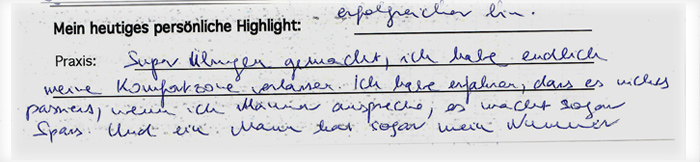 erfolgreicher bin.
Mein heutiges persönliche Highlight:
Praxis: Super Übungen gemacht, ich habe endlich
meine Komfortzone verlassen. Ich habe erfahren, dass es nichts
passiers, wenn ich Männer anspreche, es macht sogar
Spass. Und ein Mann hat sogar mein Nummer